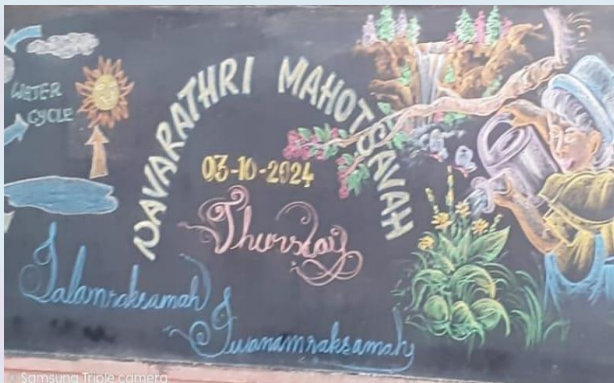 WATER
CYCLE
NAVARATHRI MAHOTSAVAH
03-10-2024
Thursday
Jalamraksamah
Jwanamraksamah
Samsung Triple camera